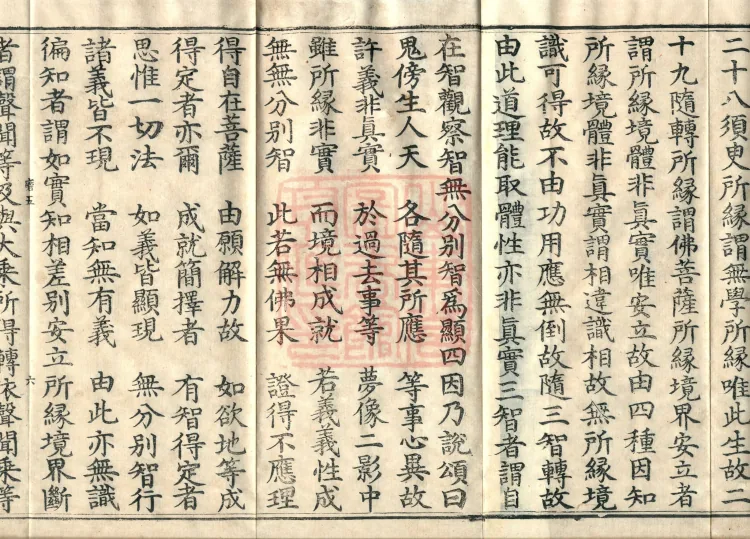 二十八須臾人所緣謂無學所緣唯此生故二
十九隨轉所緣謂佛菩薩所緣境界安立者
謂所緣境體非真實唯安立故由四種因知
所緣境體非真實謂相違識相故無所緣境
識可得故不由功用應無倒故隨三智轉故
由此道理能取體性亦非真實三智者謂自
在智觀察智無分別智爲顯四因乃說頌曰
鬼傍生人天　各隨其所應　等事心異故
許義非真實　於過去事等　夢像二影中
雖所緣非實　而境相成就　若義義性成
無無分別智　此若無佛果　證得不應理
得自在菩薩　由願解力故　如欲地等成
得定者亦爾　成就簡擇者　有智得定者
思惟一切法　如義皆顯現　無分別智行
諸義皆不現　當知無有義　由此亦無識
徧知者謂如實知相差別安立所緣境界斷
者謂聲聞等及與大乘所得轉依聲聞乘等
六